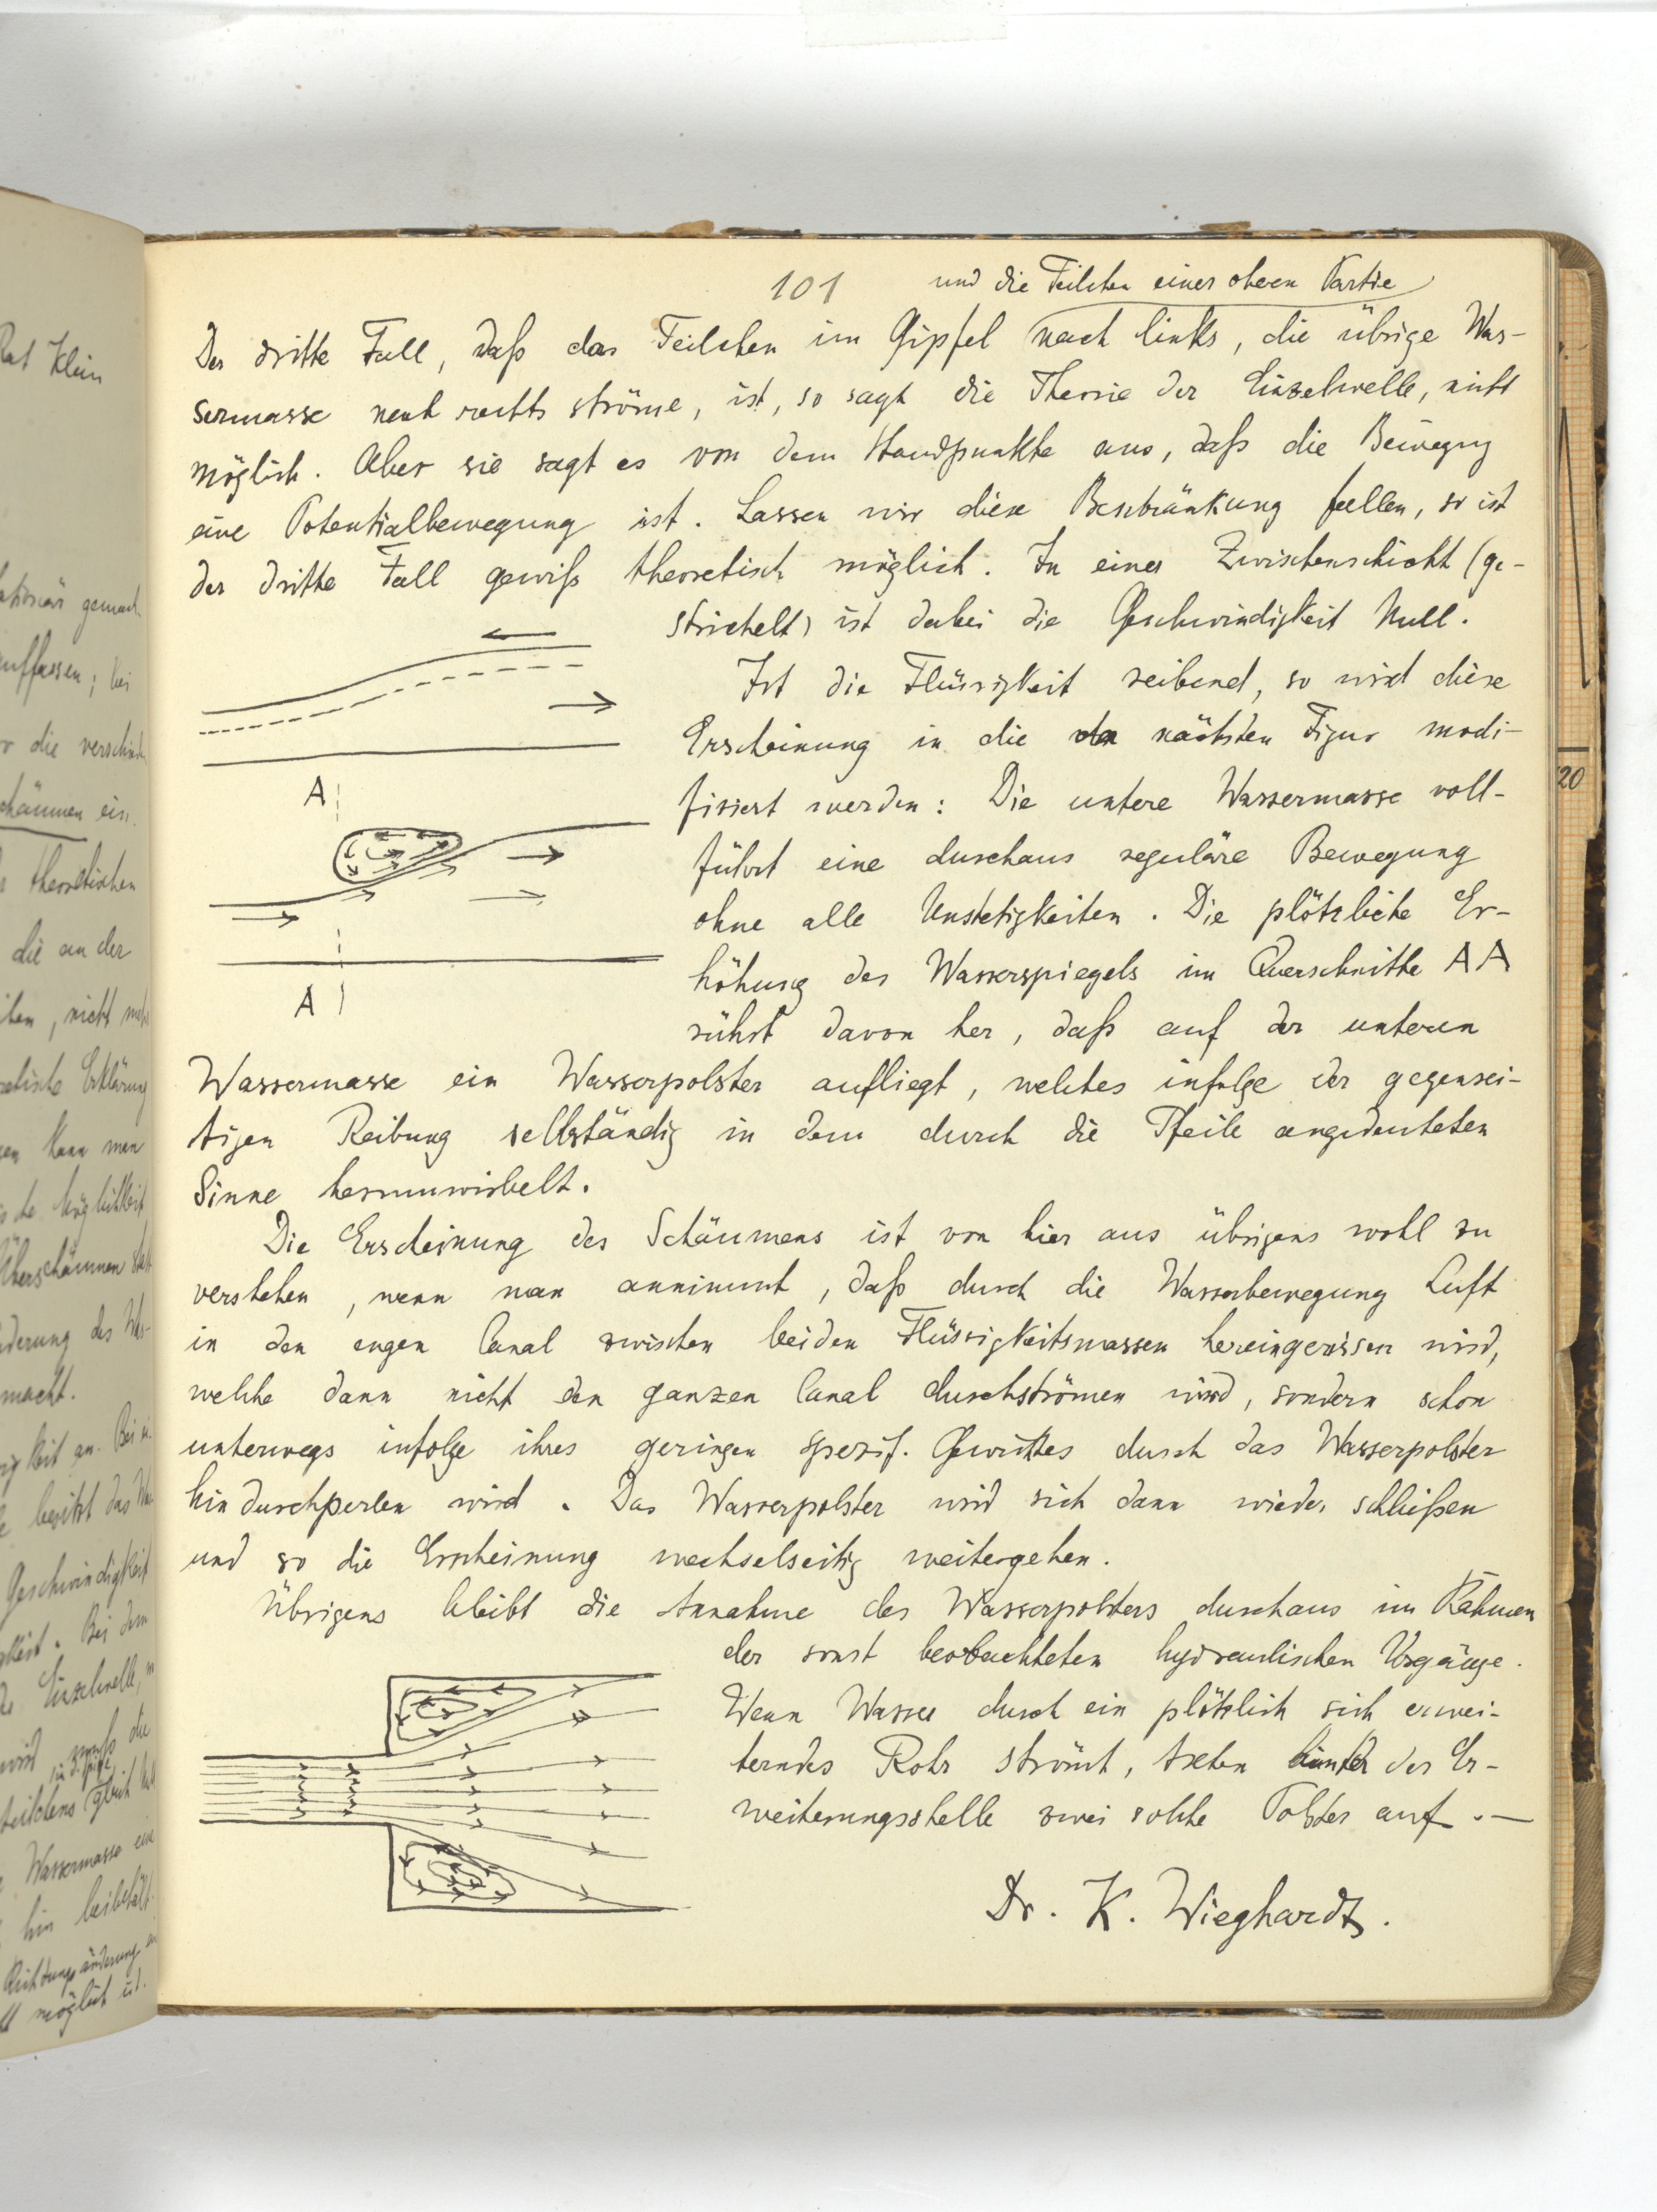 101
und die Teilchen einer oberen Partie
Der dritte Fall, daß das Teilchen im Gipfel nach links, die übrige Was-
sermasse nach rechts ströme, ist, so sagt die Theorie der Einzelwelle, nicht
möglich. Aber sie sagt es von dem Standpunkte aus, daß die Bewegung
eine Potentialbewegung ist. Lassen wir diese Beschränkung fallen, so ist
der dritte Fall gewiß theoretisch möglich. In einer Zwischenschicht (ge-
strichelt) ist dabei die Geschwindigkeit Null.
Ist die Flüssigkeit reibend, so wird diese
Erscheinung in die der nächsten Figur modi-
fiziert werden: Die untere Wassermasse voll-
führt eine durchaus reguläre Bewegung
ohne alle Unstetigkeiten. Die plötzliche Er-
höhung des Wasserspiegels im Querschnitte AA
rührt davon her, daß auf der unteren
A
A
Wassermasse ein Wasserpolster aufliegt, welches infolge der gegensei-
tigen Reibung selbständig in dem durch die Pfeile angedeuteten
Sinne herumwirbelt.
Die Erscheinung des Schäumens ist von hier aus übrigens wohl zu
verstehen, wenn man annimmt, daß durch die Wasserbewegung Luft
in den engen Canal zwischen beiden Flüssigkeitsmassen hereingerissen wird,
welche dann nicht den ganzen Canal durchströmen wird, sondern schon
unterwegs infolge ihres geringen spezif. Gewichtes durch das Wasserpolster
hindurchperlen wird. Das Wasserpolster wird sich dann wieder schließen
und so die Erscheinung wechselseitig weitergehen.
Übrigens bleibt die Annahme des Wasserpolsters durchaus im Rahmen
der sonst beobachteten hydraulischen Vorgänge.
Wenn Wasser durch ein plötzlich sich erwei-
terndes Rohr strömt, treten hinter der Er-
weiterungsstelle zwei solche Polster auf. —
Dr. K. Wieghardt.
20
Rat Klein
gemacht
auffassen; bei
die verschied
schäumen ein.
theoretischen
die an der
nicht mehr
Erklärung
kann man
Möglichkeit
Überschäumen
derung des Was-
macht.
besitzt das Wa
Geschwindigkeit
Bei dem
Einzelwelle,
wird muß die
Teilchens gleich
Wassermasse eine
hin beibehält.
Richtungsänderung
möglich ist.